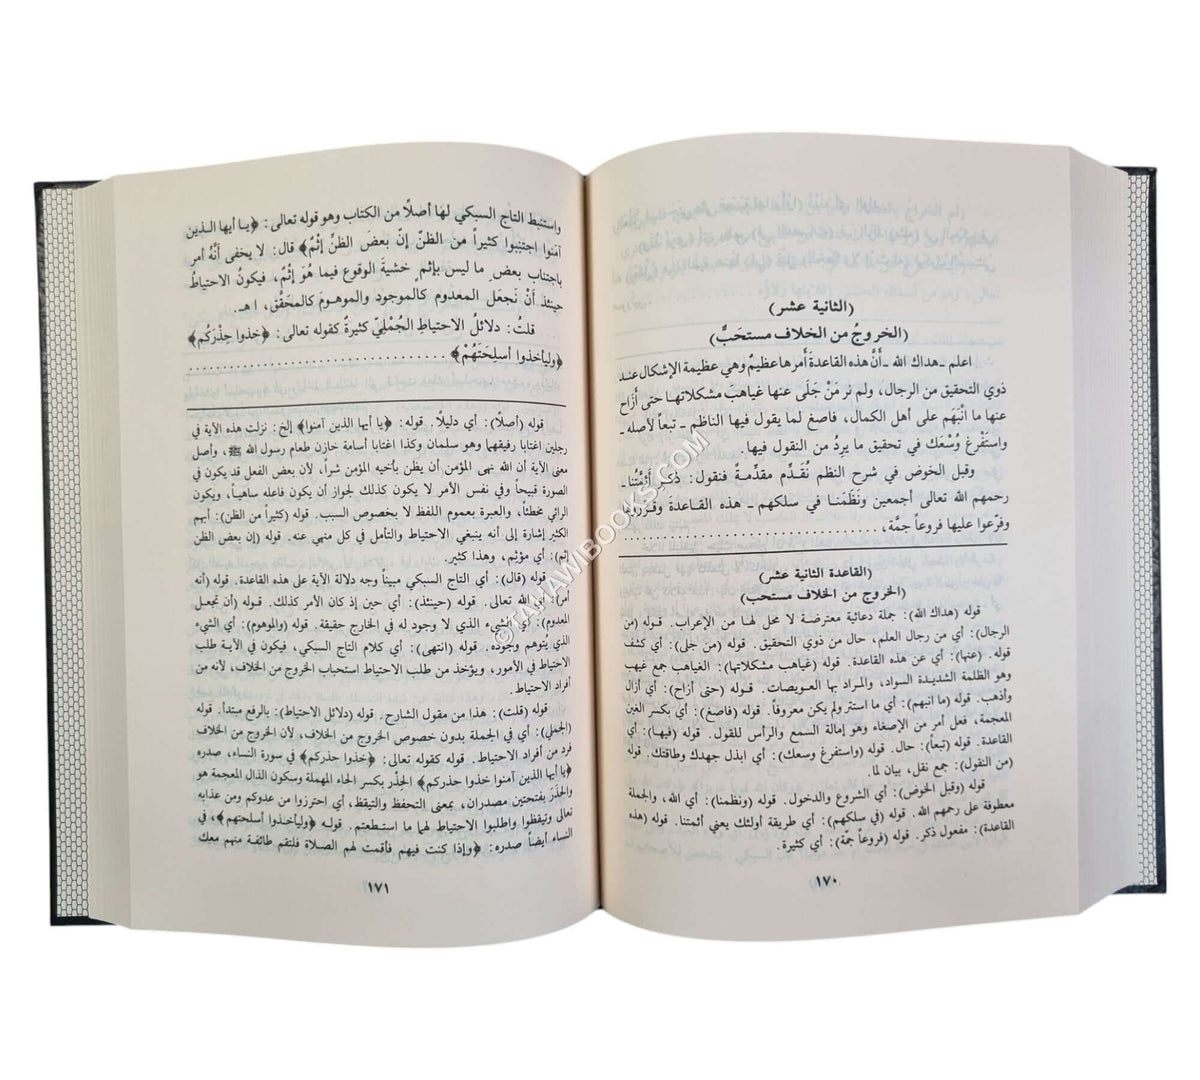 (الثانية عشر)
(الخروجُ من الخلاف مستحَبٌّ)
اعلم ـ هداك الله ـ أنَّ هذه القاعدة أمرها عظيمٌ وهي عظيمة الإشكال عند
ذوي التحقيق من الرجال، ولم نر مَنْ جَلَى عنها غياهبَ مشكلاتها حتى أزَاح
عنها ما انْبَهَم على أهل الكمال، فاصغ لما يقول فيها الناظم ـ تبعاً لأصله ـ
واستَفْرِغ وُسْعَك في تحقيق ما يرِدُ من النقول فيها.
وقبل الخوض في شرح النظم نُقَدِّم مقدِّمةً فنقول: ذكر أئمَّتُنا ـ
رحمهم الله تعالى أجمعين ونَظَمَنا في سلكهم ـ هذه القاعدةَ وقرَّروها
وفرّعوا عليها فروعاً جمَّة، ..............................
(القاعدة الثانية عشر)
(الخروج من الخلاف مستحب)
قوله (هداك الله): جملة دعائية معترضة لا محل لها من الإعراب. قوله (من
الرجال): أي من رجال العلم، حال من ذوي التحقيق. قوله (من جلى): أي كشف
قوله. (عنها): أي عن هذه القاعدة. قوله (غياهب مشكلاتها): الغياهب جمع غيهب
وهو الظلمة الشديدة السواد، والمراد بها العويصات. قوله (حتى أزاح): أي أزال
وأذهب. قوله (ما انبهم): أي ما استتر ولم يكن معروفاً. قوله (فاصغ): أي بكسر الغين
المعجمة، فعل أمر من الإصغاء وهو إمالة السمع والرأس للقول. قوله (فيها): أي
القاعدة. قوله (تبعاً): حال. قوله (واستفرغ وسعك): أي ابذل جهدك وطاقتك. قوله
(من النقول): جمع نقل، بيان لما.
قوله (وقبل الخوض): أي الشروع والدخول. قوله (ونظمنا): أي الله، والجملة
معطوفة على رحمهم الله. قوله (في سلكهم): أي طريقة أولئك يعني أئمتنا. قوله (هذه
القاعدة): مفعول ذكر. قوله (فروعاً جمّة): أي كثيرة.
١٧٠
واستنبط التاج السبكي لها أصلًا من الكتاب وهو قوله تعالى: ﴿يا أيها الذين
آمنوا اجتنبوا كثيراً من الظنّ إنّ بعض الظن إثْمٌ﴾ قال: لا يخفى أنَّهُ أمر
باجتناب بعض ما ليس بإثم خشيةَ الوقوع فيما هُوَ إثْمٌ، فيكونُ الاحتياطُ
حينئذ أنْ نَجعَل المعدوم كالموجود والموهومَ كالمحَقَّق، ا هـ.
قلتُ: دلائلُ الاحتياطِ الجُمْلِيّ كثيرةٌ كقوله تعالى: ﴿خذوا حِذْرَكُم﴾
﴿وليأخذوا أسلِحَتَهُمْ﴾ ..............................
قوله (أصلًا): أي دليلًا. قوله: ﴿يا أيها الذين آمنوا﴾ إلخ: نزلت هذه الآية في
رجلين اغتابا رفيقهما وهو سلمان وكذا اغتابا أسامة خازن طعام رسول الله ﷺ، وأصل
معنى الآية أن الله نهى المؤمن أن يظن بأخيه المؤمن شراً، لأن بعض الفعل قد يكون في
الصورة قبيحاً وفي نفس الأمر لا يكون كذلك لجواز أن يكون فاعله ساهياً، ويكون
الرائي مخطئاً، والعبرة بعموم اللفظ لا بخصوص السبب. قوله (كثيراً من الظن): أبهم
الكثير إشارة إلى أنه ينبغي الاحتياط والتأمل في كل منهي عنه. قوله (إن بعض الظن
إثم): أي مؤثم، وهذا كثير.
قوله (قال): أي التاج السبكي مبيناً وجه دلالة الآية على هذه القاعدة. قوله (أنه
أمر): أي الله تعالى. قوله (حينئذ): أي حين إذ كان الأمر كذلك. قوله (أن تجعل
المعدوم): أي الشيء الذي لا وجود له في الخارج حقيقة. قوله (والموهوم): أي الشيء
الذي يتوهم وجوده. قوله (انتهى): أي كلام التاج السبكي، فيكون في الآية طلب
الاحتياط في الأمور، ويؤخذ من طلب الاحتياط استحباب الخروج من الخلاف، لأنه من
أفراد الاحتياط.
قوله (قلت): هذا من مقول الشارح. قوله (دلائل الاحتياط): بالرفع مبتدأ. قوله
(الجملي): أي في الجملة بدون خصوص الخروج من الخلاف، لأن الخروج من الخلاف
فرد من أفراد الاحتياط. قوله كقوله تعالى: ﴿خذوا حذركم﴾ في سورة النساء، صدره
﴿يا أيها الذين آمنوا خذوا حذركم﴾ الحِذْر بكسر الحاء المهملة وسكون الذال المعجمة هو
والحَذَر بفتحتين مصدران، بمعنى التحفظ والتيقظ، أي احترزوا من عدوكم ومن عذابه
تعالى وتيقظوا واطلبوا الاحتياط لهما ما استطعتم. قوله ﴿وليأخذوا أسلحتهم﴾، في
النساء أيضاً صدره: ﴿وإذا كنت فيهم فأقمت لهم الصلاة فلتقم طائفة منهم معك
١٧١
©TAHAWIBOOKS.COM